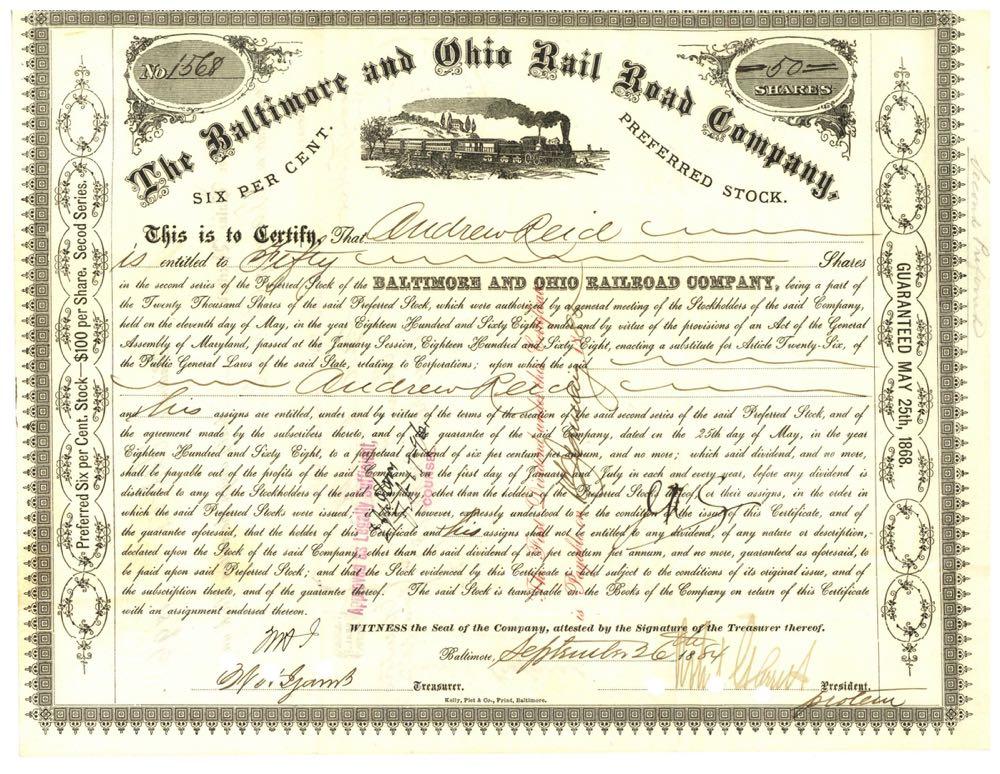 No. 1568
50
SHARES
The Baltimore and Ohio Rail Road Company.
SIX PER CENT. PREFERRED STOCK.
This is to Certify, That Andrew Reid
is entitled to Fifty Shares
in the second series of the Preferred Stock of the BALTIMORE AND OHIO RAILROAD COMPANY, being a part of
the Twenty Thousand Shares of the said Preferred Stock, which were authorized by a general meeting of the Stockholders of the said Company,
held on the eleventh day of May, in the year Eighteen Hundred and Sixty Eight, under and by virtue of the provisions of an Act of the General
Assembly of Maryland, passed at the January Session, Eighteen Hundred and Sixty Eight, enacting a substitute for Article Twenty-Six, of
the Public General Laws of the said State, relating to Corporations; upon which the said
Andrew Reid
and his assigns are entitled, under and by virtue of the terms of the creation of the said second series of the said Preferred Stock, and of
the agreement made by the subscribers thereto, and of the guarantee of the said Company, dated on the 25th day of May, in the year
Eighteen Hundred and Sixty Eight, to a perpetual dividend of six per centum per annum, and no more; which said dividend, and no more,
shall be payable out of the profits of the said Company on the first day of January and July in each and every year, before any dividend is
distributed to any of the Stockholders of the said Company, other than the holders of the Preferred Stock thereof (or their assigns, in the order in
which the said Preferred Stocks were issued, it being however, expressly understood to be the condition of the issue of this Certificate, and of
the guarantee aforesaid, that the holder of this Certificate and his assigns shall not be entitled to any dividend, of any nature or description,
declared upon the Stock of the said Company other than the said dividend of six per centum per annum, and no more, guaranteed as aforesaid, to
be paid upon said Preferred Stock; and that the Stock evidenced by this Certificate is held subject to the conditions of its original issue, and of
the subscription thereto, and of the guarantee thereof. The said Stock is transferable on the Books of the Company on return of this Certificate
with an assignment endorsed thereon.
WITNESS the Seal of the Company, attested by the Signature of the Treasurer thereof.
Baltimore, September 26th 1884
Treasurer.
President
pro tem
Kelly, Piet & Co., Print, Baltimore.
Preferred Six per Cent. Stock—$100 per Share. Secod Series.
GUARANTEED MAY 25th, 1868.
Approved as Legally Sufficient,
COUNSEL